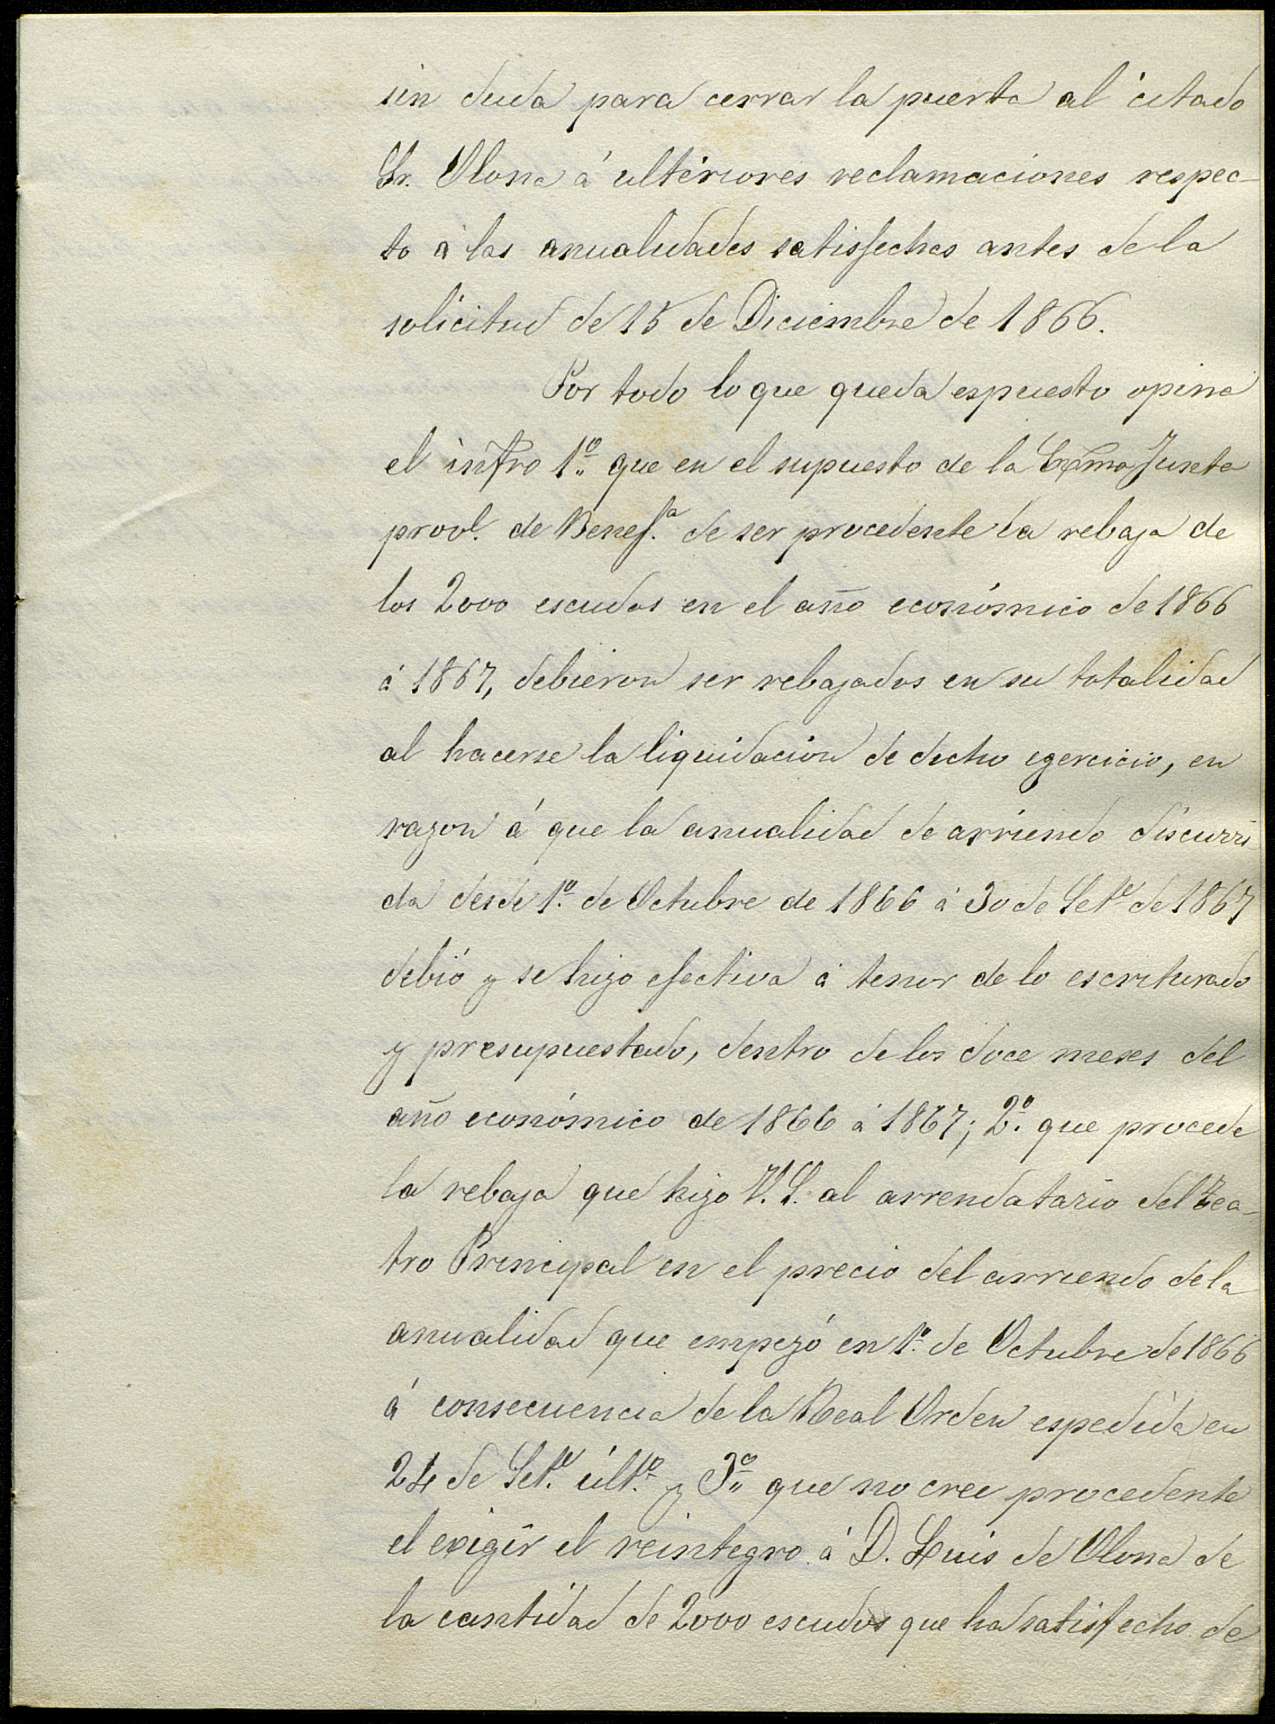 sin duda para cerrar la puerta al citado
Sr. Olona á ulteriores reclamaciones respec-
to á las anualidades satisfechas antes de la
solicitud de 15 de Diciembre de 1866.
Por todo lo que queda espuesto opina
el infro 1º. que en el supuesto de la Exma Junta
provl. de Benefª. de ser procedente la rebaja de
los 2000 escudos en el año económico de 1866
á 1867, debieron ser rebajados en su totalidad
al hacerse la liquidacion de dicho egercicio, en
razon á que la anualidad de arriendo discurri
da desde 1º. de Octubre de 1866 á 30 de Set.e de 1867
debió y se hizo efectiva á tenor de lo escriturado
y presupuestado, dentro de los doce meses del
año económico de 1866 á 1867; 2º. que procede
la rebaja que hizo V.S. al arrendatario del Tea-
tro Principal en el precio del arriendo de la
anualidad que empezó en 1º. de Octubre de 1866
á consecuencia de la Real Orden espedida en
24 de Set.e últº. y 3º. que no cree procedente
el exigir el reintegro á D. Luis de Olona de
la cantidad de 2000 escudos que ha satisfecho de